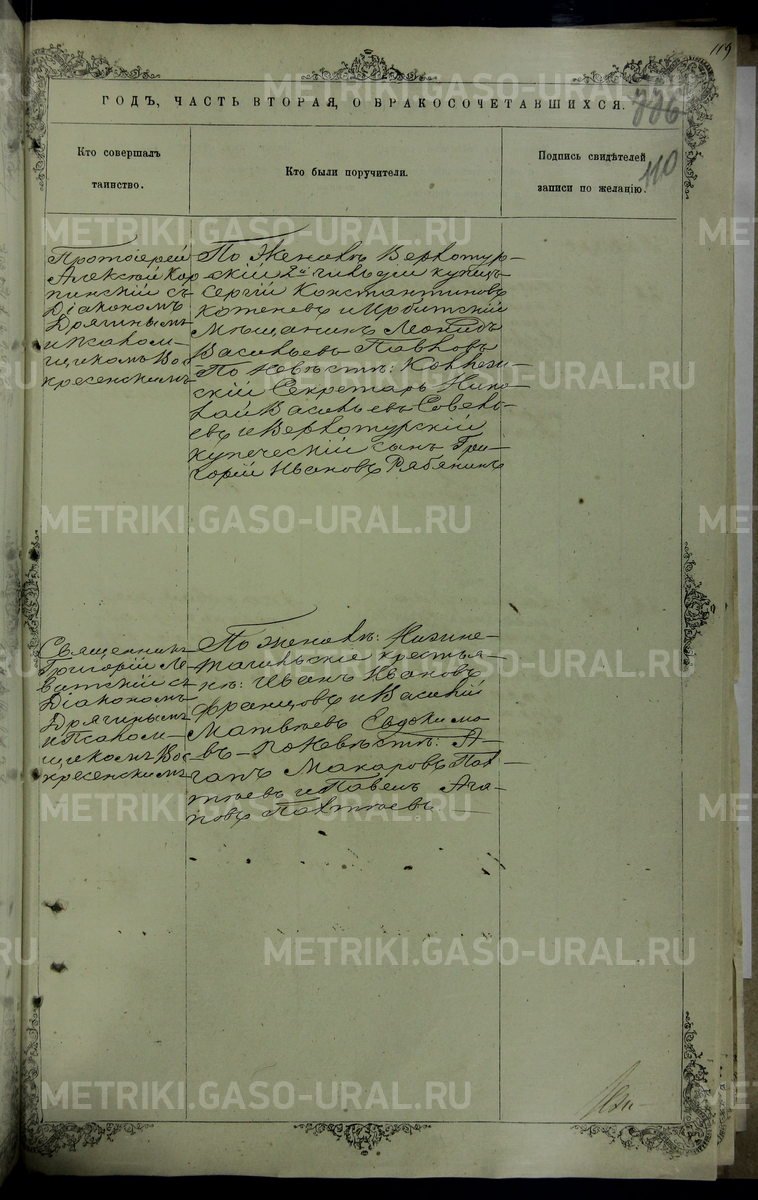 119
ГОДЪ, ЧАСТЬ ВТОРАЯ, О БРАКОСОЧЕТАВШИХСЯ.
776
110
Кто совершалъ
таинство.
Кто были поручители.
Подпись свидѣтелей
записи по желанію.
Протоіерей
Алексѣй Кар
пинскій съ
Діакономъ
Дрягинымъ
и псалом-
щикомъ Вос
кресенскимъ
По Женихѣ Верхотур-
скій 2й гильдіи купецъ
Сергій Константиновъ
Котеневъ и Ирбитскій
Мѣщанинъ Леонидъ
Васильевъ Павловъ
По Невѣстѣ: Коллежи-
скій Секретарь Нико-
лай Васильевъ Совель-
евъ и Верхотурскій
купеческій сынъ Гри-
горій Ивановъ Рябининъ
Священникъ
Григорій Ле-
витскій съ
Діакономъ
Дрягинымъ
и Псалом-
щикомъ Вос-
кресенскимъ
По Женихѣ: Нижне-
тагильскіе крестья-
не: Иванъ Ивановъ
Францовъ и Василій
Матвѣевъ Евдокимо-
въ - По Невѣстѣ: А-
гапъ Макаровъ Пан-
тѣевъ и Павелъ Ага-
повъ Пантѣевъ
METRIKI.GASO-URAL.RU